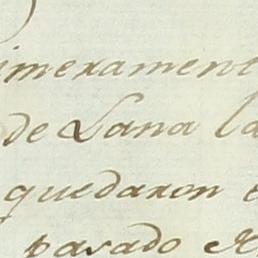 imerament
de Lana la
quedaron e
pasado